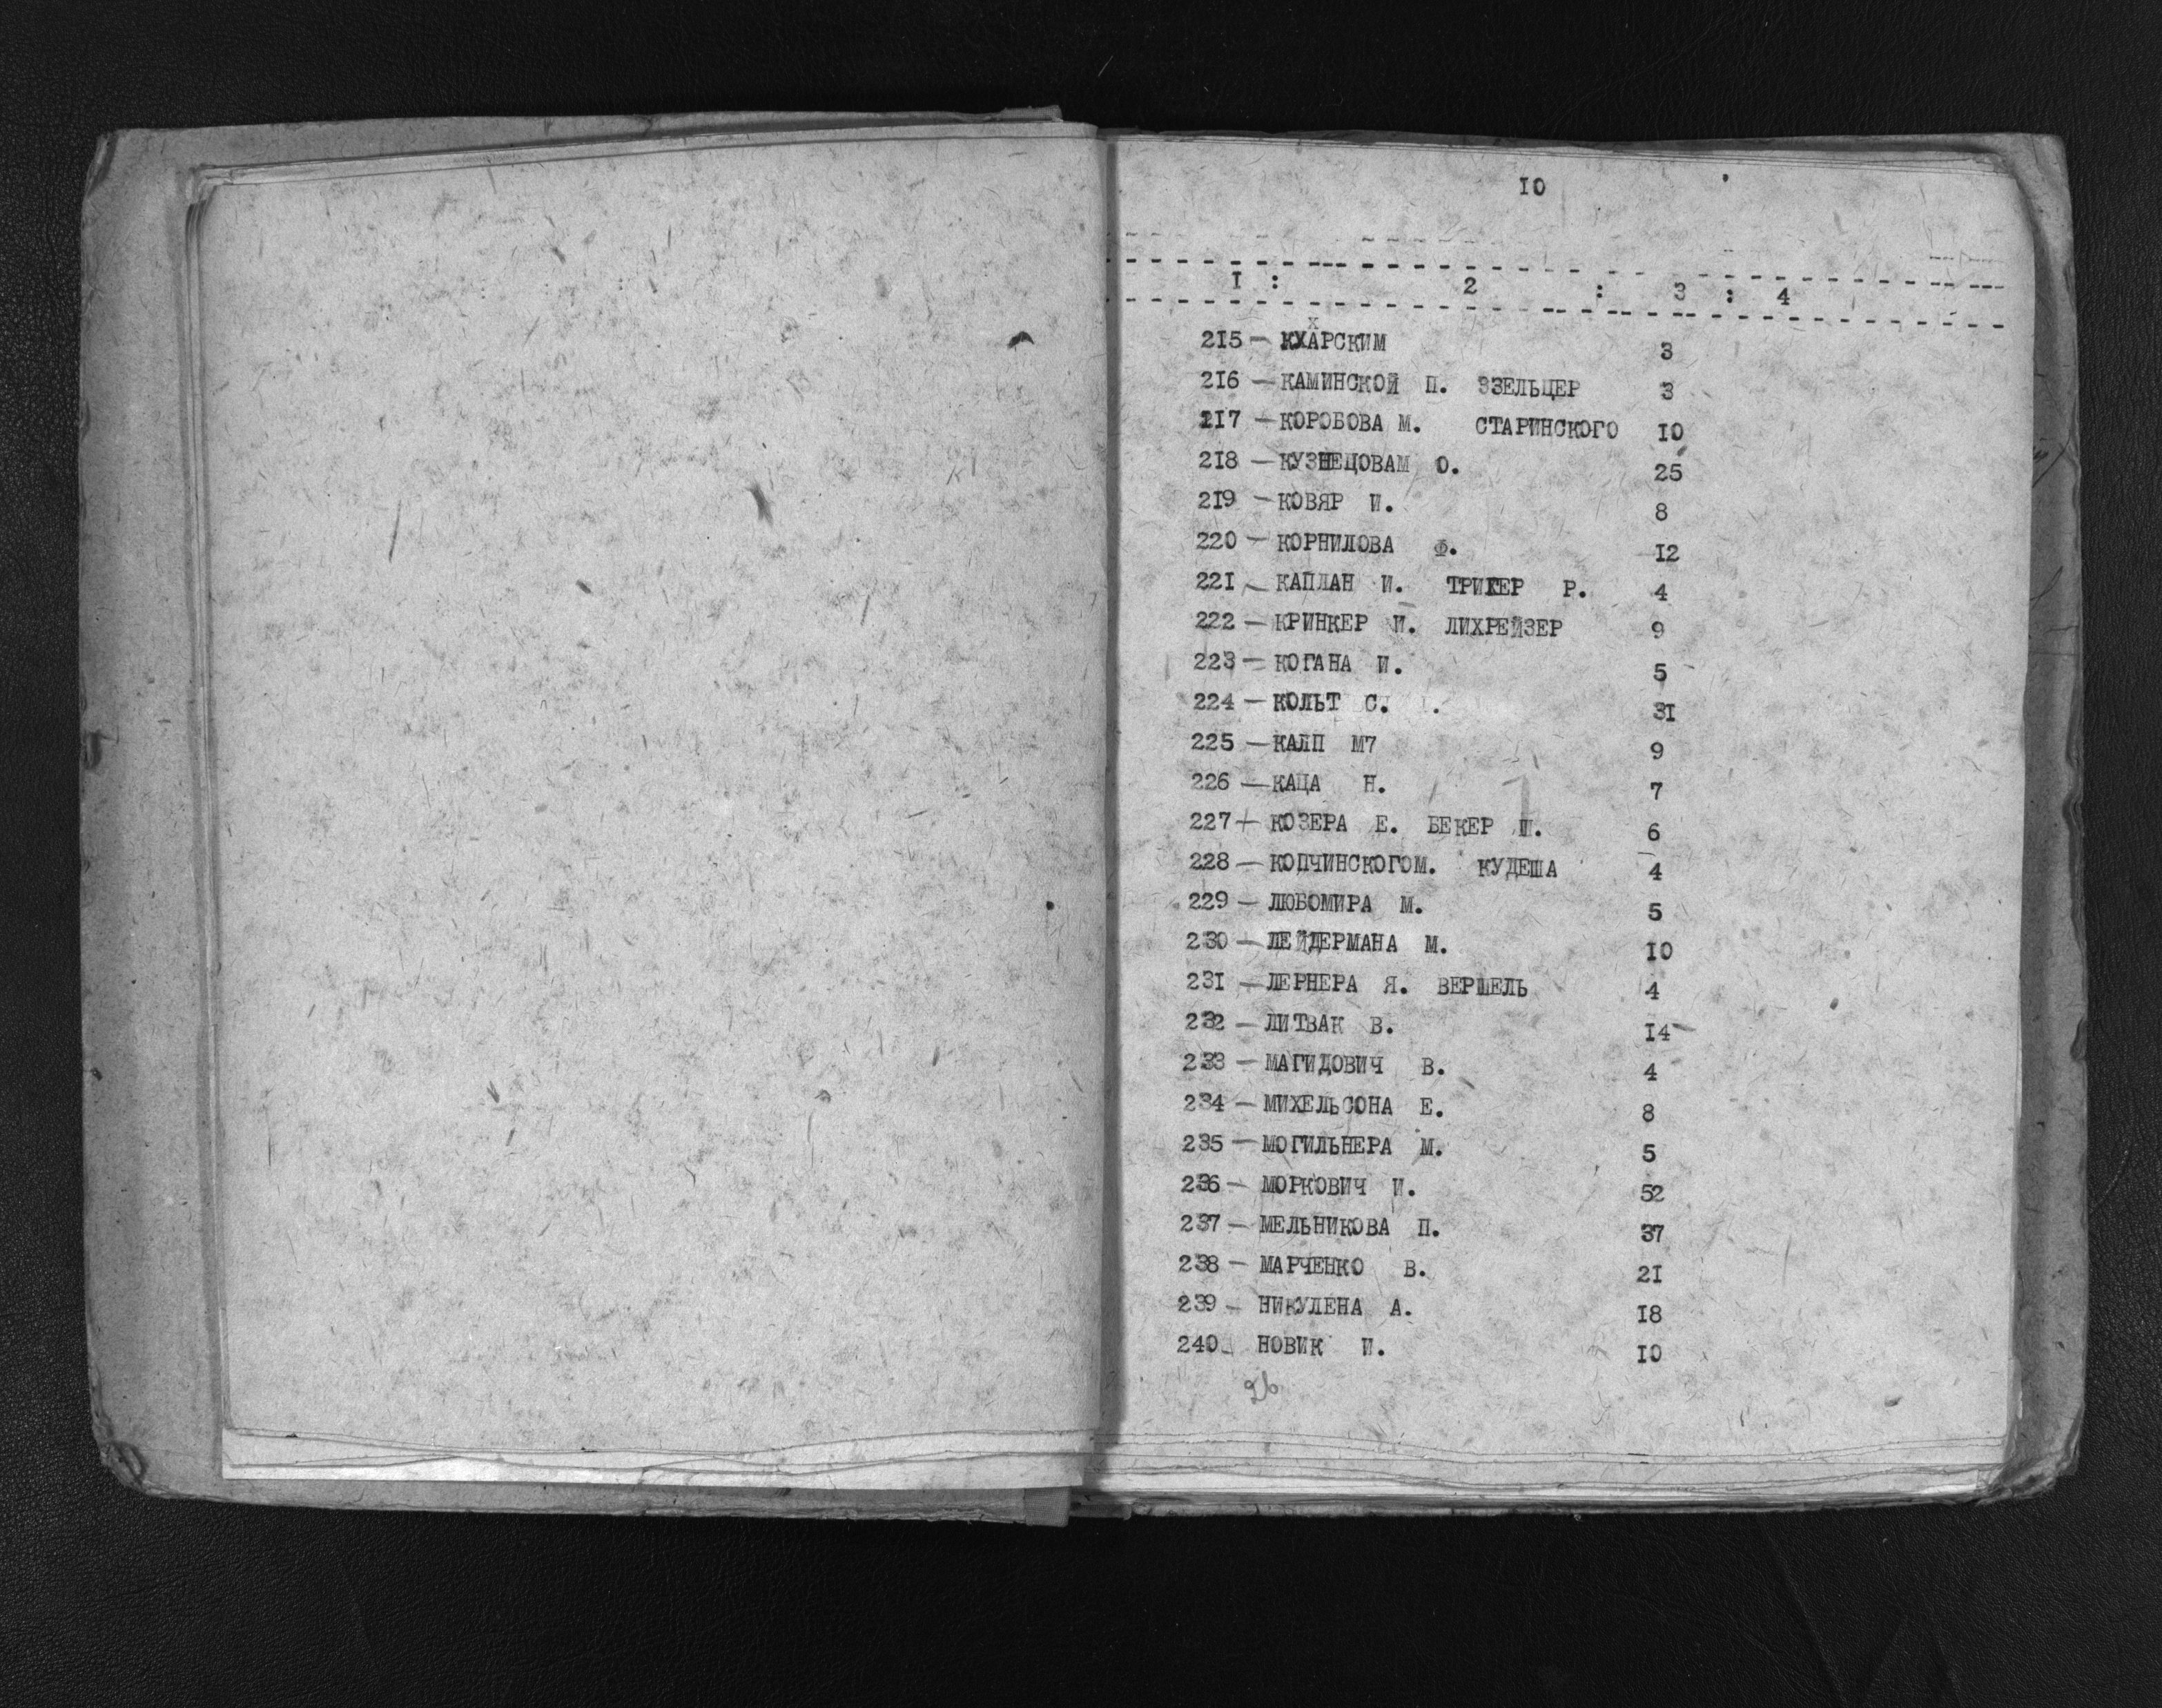 10
1 : 2 : 3 : 4
215 - КУХАРСКИМ 3
216 - КАМИНСКОЙ П. ЗЗЕЛЬЦЕР 3
217 - КОРОБОВА М. СТАРИНСКОГО 10
218 - КУЗНЕЦОВАМ О. 25
219 - КОВЯР И. 8
220 - КОРНИЛОВА Ф. 12
221 - КАПЛАН И. ТРИГЕР Р. 4
222 - КРИНКЕР И. ЛИХРЕЙЗЕР 9
223 - КОГАНА И. 5
224 - КОЛЬТ С. 31
225 - КАЛП М7 9
226 - КАЦА Н. 7
227 - КОЗЕРА Е. БЕКЕР Ш. 6
228 - КОПЧИНСКОГОМ. КУДЕША 4
229 - ЛЮБОМИРА М. 5
230 - ЛЕЙДЕРМАНА М. 10
231 - ЛЕРНЕРА Я. ВЕРШЕЛЬ 4
232 - ЛИТВАК В. 14
233 - МАГИДОВИЧ В. 4
234 - МИХЕЛЬСОНА Е. 8
235 - МОГИЛЬНЕРА М. 5
236 - МОРКОВИЧ И. 52
237 - МЕЛЬНИКОВА П. 37
238 - МАРЧЕНКО В. 21
239 - НИКУЛЕНА А. 18
240 - НОВИК И. 10
26